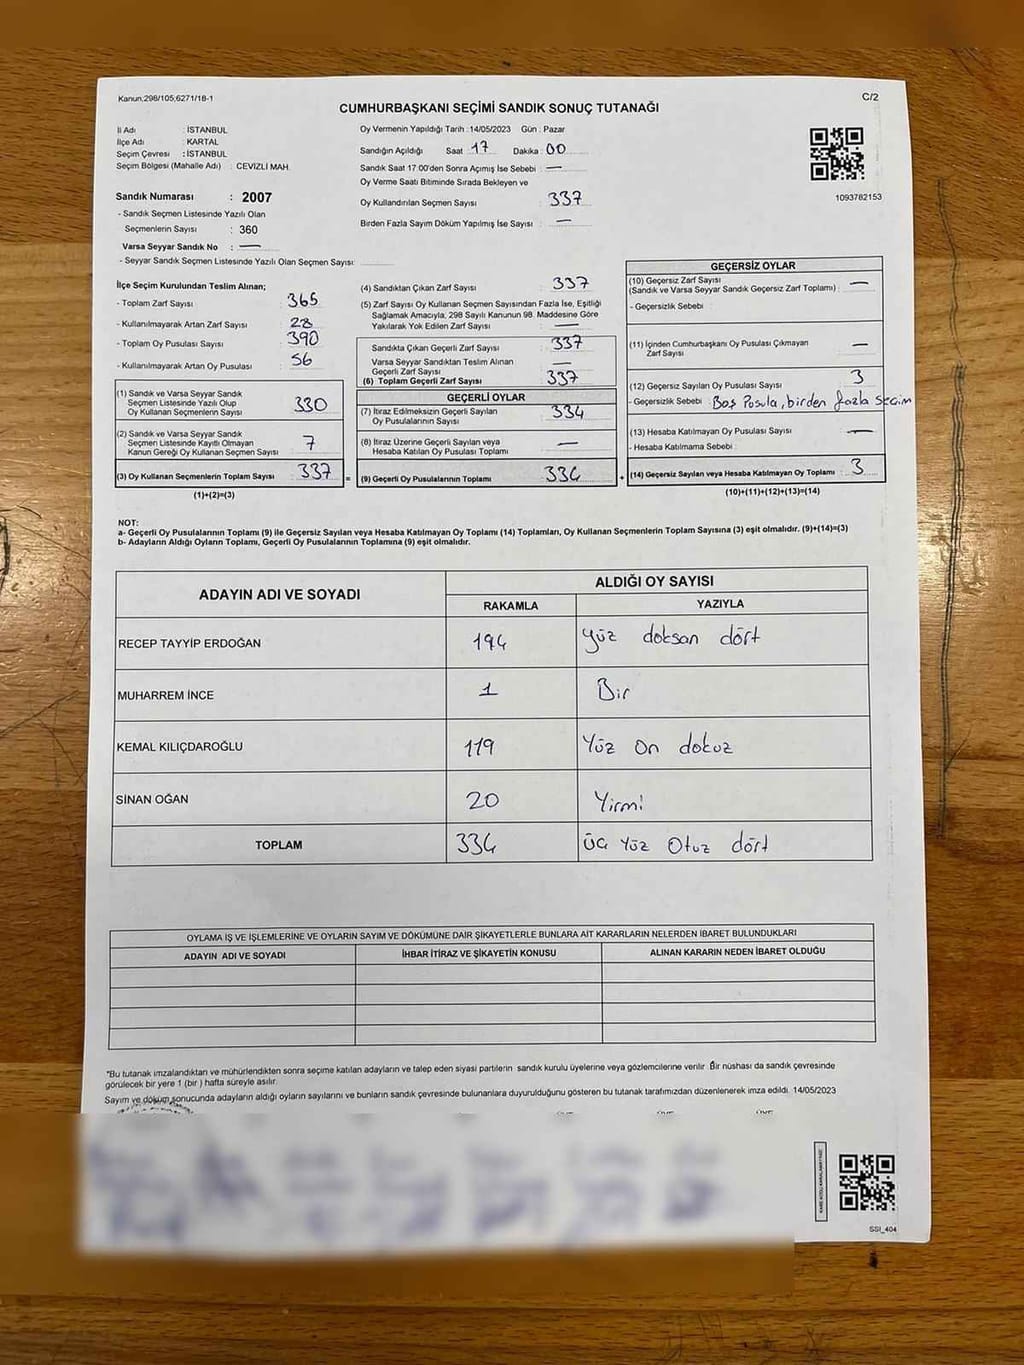 Kanun,298/105;6271/18-1
C/2
CUMHURBAŞKANI SEÇİMİ SANDIK SONUÇ TUTANAĞI
İl Adı : İSTANBUL
İlçe Adı : KARTAL
Seçim Çevresi : İSTANBUL
Seçim Bölgesi (Mahalle Adı) : CEVİZLİ MAH.
Sandık Numarası : 2007
- Sandık Seçmen Listesinde Yazılı Olan
Seçmenlerin Sayısı : 360
Varsa Seyyar Sandık No : —
- Seyyar Sandık Seçmen Listesinde Yazılı Olan Seçmen Sayısı:
Oy Vermenin Yapıldığı Tarih : 14/05/2023 Gün : Pazar
Sandığın Açıldığı Saat 17 Dakika 00
Sandık Saat 17.00'den Sonra Açımış İse Sebebi : —
Oy Verme Saati Bitiminde Sırada Bekleyen ve
Oy Kullandırılan Seçmen Sayısı : 337
Birden Fazla Sayım Döküm Yapılmış İse Sayısı : —
1093782153
İlçe Seçim Kurulundan Teslim Alınan;
- Toplam Zarf Sayısı : 365
- Kullanılmayarak Artan Zarf Sayısı : 28
- Toplam Oy Pusulası Sayısı : 390
- Kullanılmayarak Artan Oy Pusulası : 56
(1) Sandık ve Varsa Seyyar Sandık
Seçmen Listesinde Yazılı Olup
Oy Kullanan Seçmenlerin Sayısı : 330
(2) Sandık ve Varsa Seyyar Sandık
Seçmen Listesinde Kayıtlı Olmayan
Kanun Gereği Oy Kullanan Seçmen Sayısı : 7
(3) Oy Kullanan Seçmenlerin Toplam Sayısı : 337
(1)+(2)=(3)
(4) Sandıktan Çıkan Zarf Sayısı : 337
(5) Zarf Sayısı Oy Kullanan Seçmen Sayısından Fazla İse, Eşitliği
Sağlamak Amacıyla, 298 Sayılı Kanunun 98. Maddesine Göre
Yakılarak Yok Edilen Zarf Sayısı : —
Sandıkta Çıkan Geçerli Zarf Sayısı : 337
Varsa Seyyar Sandıktan Teslim Alınan
Geçerli Zarf Sayısı : —
(6) Toplam Geçerli Zarf Sayısı : 337
GEÇERLİ OYLAR
(7) İtiraz Edilmeksizin Geçerli Sayılan
Oy Pusulalarının Sayısı : 334
(8) İtiraz Üzerine Geçerli Sayılan veya
Hesaba Katılan Oy Pusulası Toplamı : —
= (9) Geçerli Oy Pusulalarının Toplamı : 334
GEÇERSİZ OYLAR
(10) Geçersiz Zarf Sayısı
(Sandık ve Varsa Seyyar Sandık Geçersiz Zarf Toplamı) : —
- Geçersizlik Sebebi :
(11) İçinden Cumhurbaşkanı Oy Pusulası Çıkmayan
Zarf Sayısı : —
(12) Geçersiz Sayılan Oy Pusulası Sayısı : 3
- Geçersizlik Sebebi : Boş Pusula, birden fazla seçim
(13) Hesaba Katılmayan Oy Pusulası Sayısı : —
- Hesaba Katılmama Sebebi :
+ (14) Geçersiz Sayılan veya Hesaba Katılmayan Oy Toplamı : 3
(10)+(11)+(12)+(13)=(14)
NOT:
a- Geçerli Oy Pusulalarının Toplamı (9) ile Geçersiz Sayılan veya Hesaba Katılmayan Oy Toplamı (14) Toplamları, Oy Kullanan Seçmenlerin Toplam Sayısına (3) eşit olmalıdır. (9)+(14)=(3)
b- Adayların Aldığı Oyların Toplamı, Geçerli Oy Pusulalarının Toplamına (9) eşit olmalıdır.
ADAYIN ADI VE SOYADI
ALDIĞI OY SAYISI
RAKAMLA YAZIYLA
RECEP TAYYİP ERDOĞAN 194 Yüz doksan dört
MUHARREM İNCE 1 Bir
KEMAL KILIÇDAROĞLU 119 Yüz on dokuz
SİNAN OĞAN 20 Yirmi
TOPLAM 334 Üç Yüz Otuz dört
OYLAMA İŞ VE İŞLEMLERİNE VE OYLARIN SAYIM VE DÖKÜMÜNE DAİR ŞİKAYETLERLE BUNLARA AİT KARARLARIN NELERDEN İBARET BULUNDUKLARI
ADAYIN ADI VE SOYADI İHBAR İTİRAZ VE ŞİKAYETİN KONUSU ALINAN KARARIN NEDEN İBARET OLDUĞU
*Bu tutanak imzalandıktan ve mühürlendikten sonra seçime katılan adayların ve talep eden siyasi partilerin sandık kurulu üyelerine veya gözlemcilerine verilir. Bir nüshası da sandık çevresinde
görülecek bir yere 1 (bir ) hafta süreyle asılır.
Sayım ve döküm sonucunda adayların aldığı oyların sayılarını ve bunların sandık çevresinde bulunanlara duyurulduğunu gösteren bu tutanak tarafımızdan düzenlenerek imza edildi. 14/05/2023
SSI_404